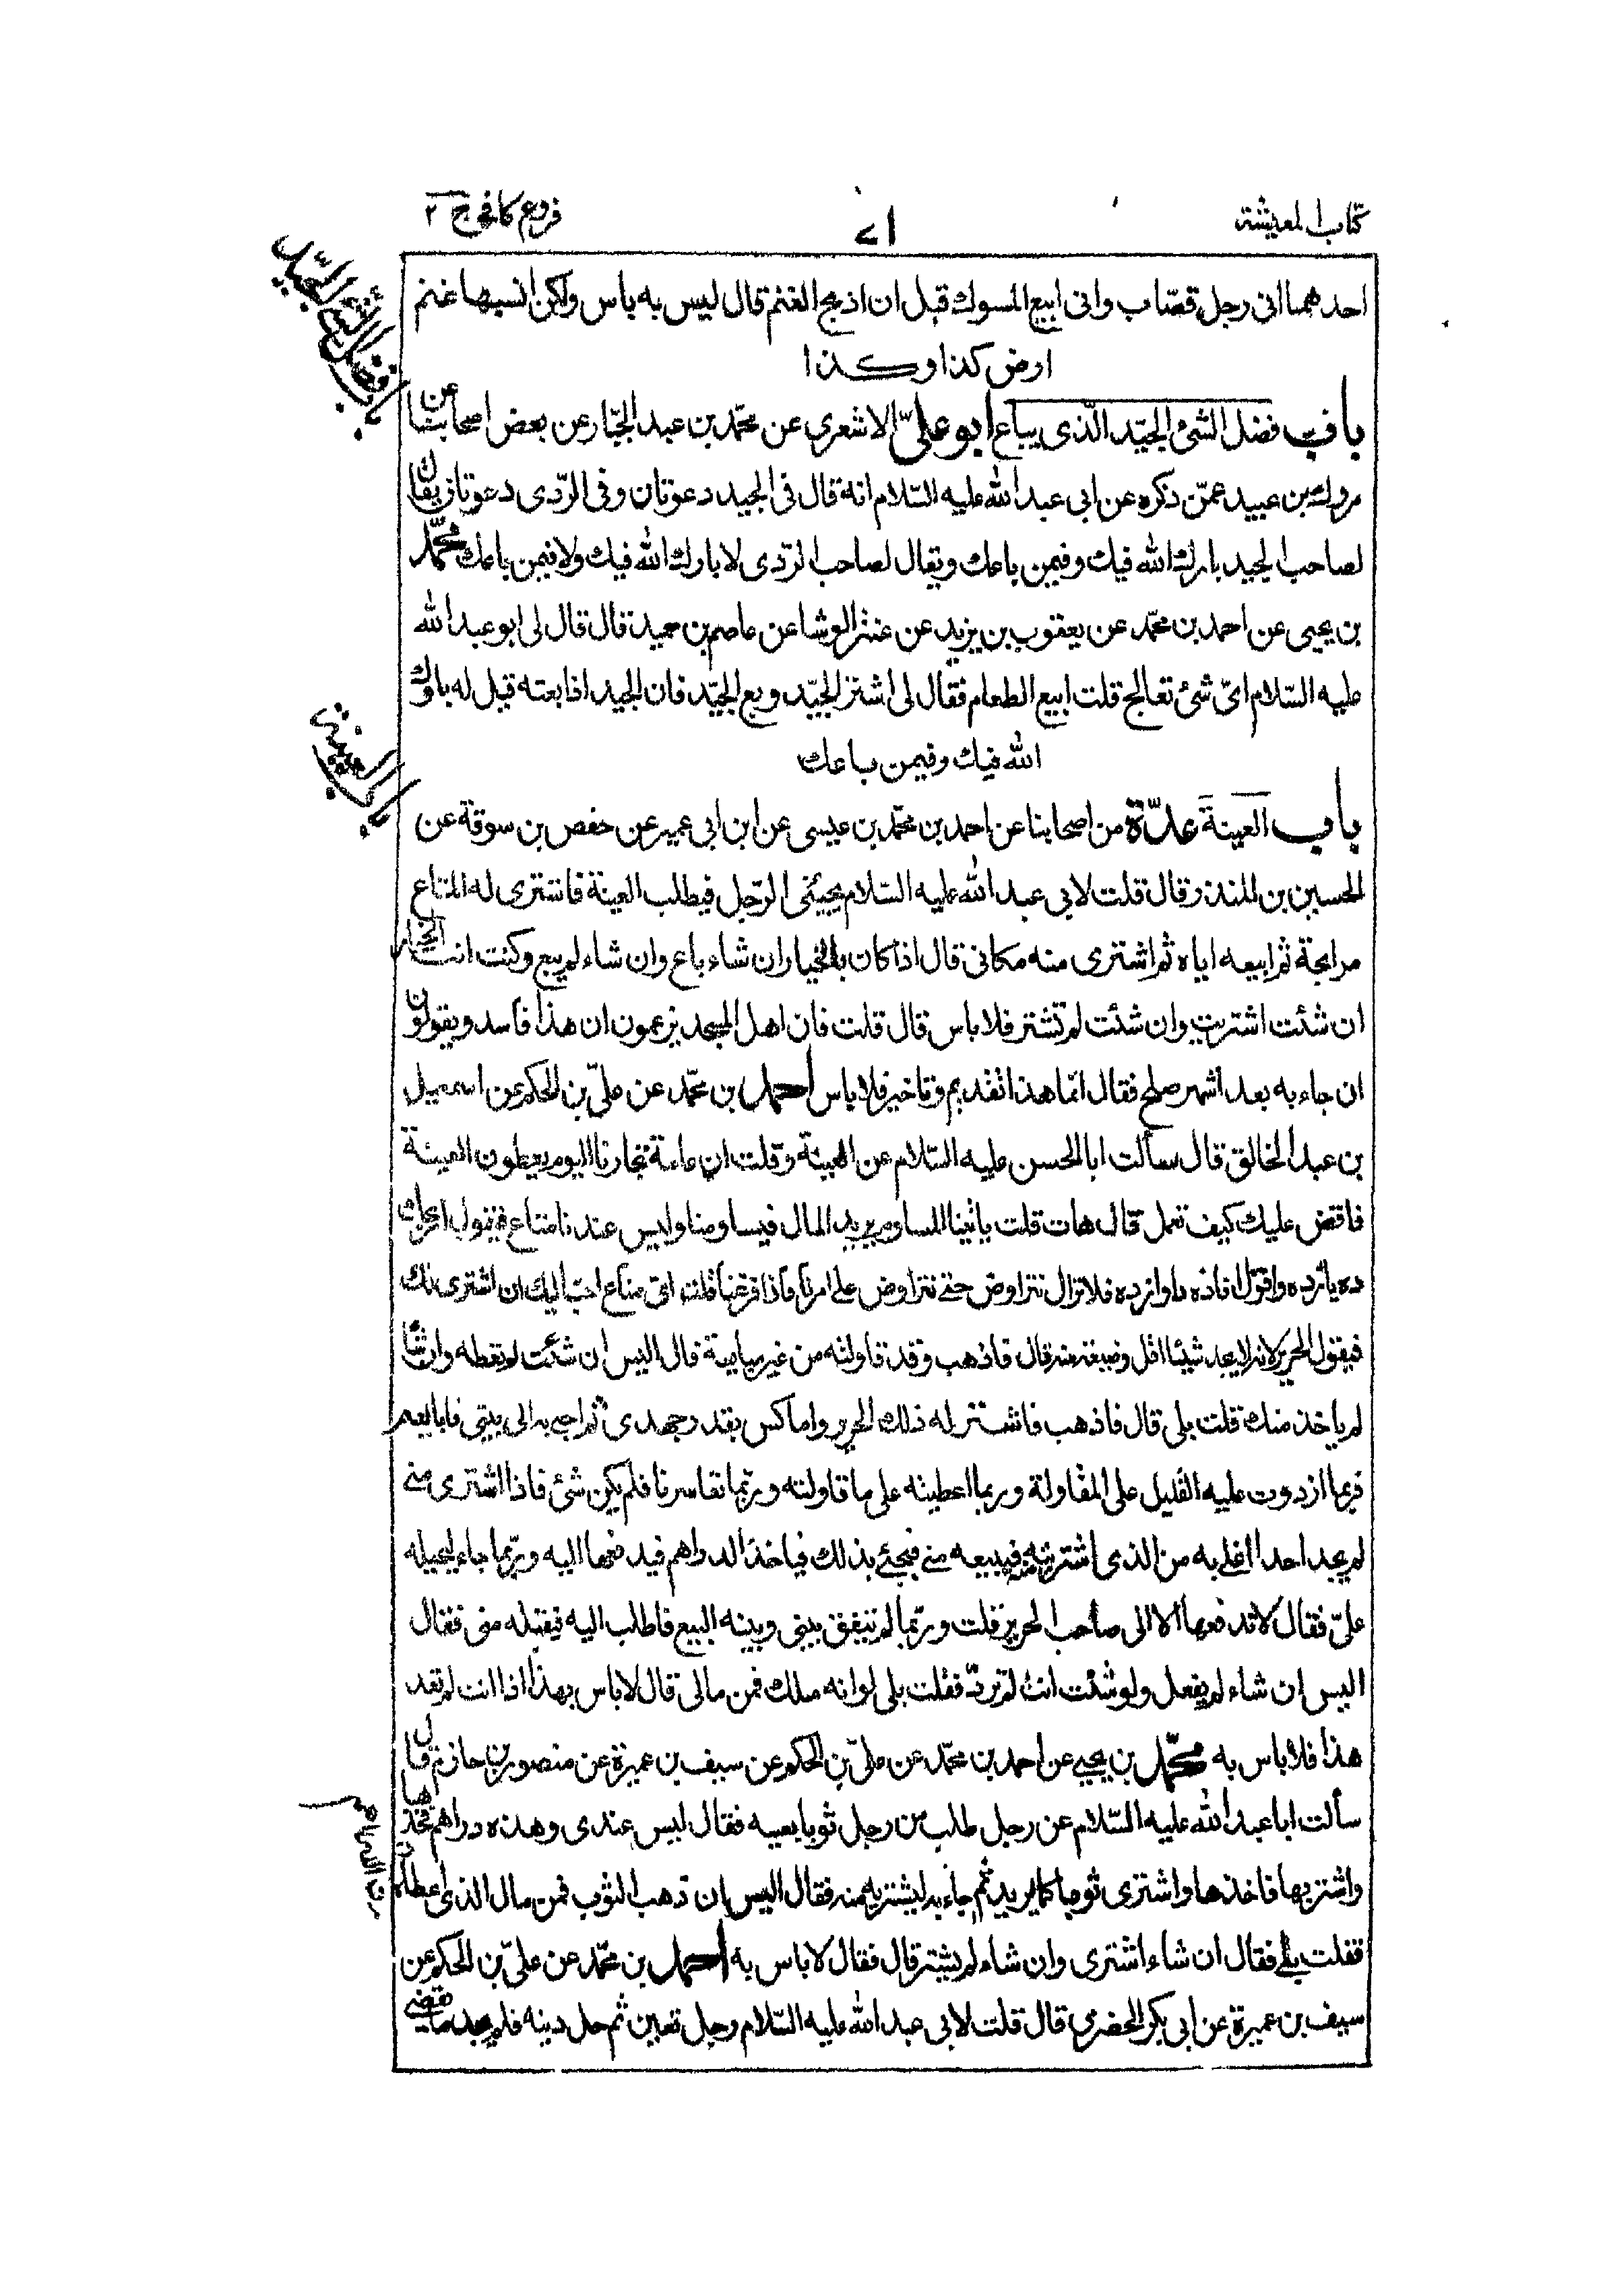 كتاب المعيشة
١٧
فروع كافى ج ٢
باب فضل الشئ الجيد
احدهما انى رجل قصّاب وانى ابيع المسوك قبل ان اذبح الغنم قال ليس به باس ولكن انسبها غنم
ارض كذا وكذا
باب فضل الشئ الجيّد الّذى يباع ابو علىّ الاشعرى عن محمّد بن عبد الجبّار عن بعض اصحابنا عن
مروك بن عبيد عمّن ذكره عن ابى عبد الله عليه السّلام انه قال فى الجيد دعوتان وفى الرّدى دعوتان يقال
لصاحب الجيد بارك الله فيك وفيمن باعك ويقال لصاحب الرّدى لا بارك الله فيك ولا فيمن باعك محمّد
بن يحيى عن احمد بن محمّد عن يعقوب بن يزيد عن الوشا عن عاصم بن حميد قال قال لى ابو عبد الله
عليه السّلام اىّ شئ تعالج قلت ابيع الطعام فقال لى اشتر الجيّد وبع الجيّد فان الجيد اذا بعته قيل له بارك
الله فيك وفيمن باعك
باب العينة
باب العينة عدّة من اصحابنا عن احمد بن محمّد بن عيسى عن ابن ابى عمير عن حفص بن سوقة عن
الحسين بن المنذر قال قلت لابى عبد الله عليه السّلام يجيئنى الرّجل فيطلب العينة فاشترى له المتاع
مرابحة ثم ابيعه اياه ثم اشترى منه مكانى قال اذا كان بالخيار ان شاء باع وان شاء لم يبع وكنت انت بالخيار
ان شئت اشتريت وان شئت لم تشتر فلا باس قال قلت فان اهل المسجد يزعمون ان هذا فاسد ويقولون
ان جاء به بعد اشهر صلح فقال انّما هذا تقديم وتاخير فلا باس احمد بن محمّد عن علىّ بن الحكم عن اسمعيل
بن عبد الخالق قال سألت ابا الحسن عليه السّلام عن العينة وقلت ان عامة تجارنا اليوم يعطون العينة
فاقص عليك كيف تعمل قال هات قلت ياتينا المساوم يريد المال فيساومنا وليس عندنا متاع فيقول اربحك
ده يازده واقول انا ده دوازده فلا نزال نتراوض حتى نتراوض على امر فاذا فرغنا قلت اىّ متاع احبّ اليك ان اشترى لك
فيقول الحرير لانه لا يجد شيئا اقل وضيعة منه قال فاذهب وقد قاولته من غير مبايعة قال اليس ان شئت لم تعطه وان شاء
لم ياخذ منك قلت بلى قال فاذهب فاشترى له ذلك الحرير واماكس بقدر جهدى ثم اجئ به الى بيتى فابايعه
فربما ازددت عليه القليل على المقاولة وربما اعطيته على ما قاولته وربّما تعاسرنا فلم يكن شئ فاذا اشترى منى
لم يجد احدا اغلى به من الذى اشتريته منه فيبيعه منه فيجئ بذلك فياخذ الدراهم فيدفعها اليه وربّما جاء ليحيله
علىّ فقال لا تدفعها الا الى صاحب الحرير قلت وربّما لم يتفق بينى وبينه البيع فاطلب اليه فيقبله منى فقال
اليس ان شاء لم يفعل ولو شئت انت لم تردّ فقلت بلى لو انه هلك فمن مالى قال لا باس بهذا اذا انت لم تعد
هذا فلا باس به محمّد بن يحيى عن احمد بن محمّد عن علىّ بن الحكم عن سيف بن عميرة عن منصور بن حازم قال
سألت ابا عبد الله عليه السّلام عن رجل طلب من رجل ثوبا بعينة فقال ليس عندى وهذه دراهم فخذها
واشتر بها فاخذها واشترى ثوبا كما يريد ثم جاء به ليشتريه منه فقال اليس ان ذهب الثوب فمن مال الذى اعطاه
فقلت بلى فقال ان شاء اشترى وان شاء لم يشتر قال فقال لا باس به احمد بن محمّد عن علىّ بن الحكم عن
سيف بن عميرة عن ابى بكر الحضرمى قال قلت لابى عبد الله عليه السّلام رجل تعين ثم حل دينه فلم يجد ما يقضى